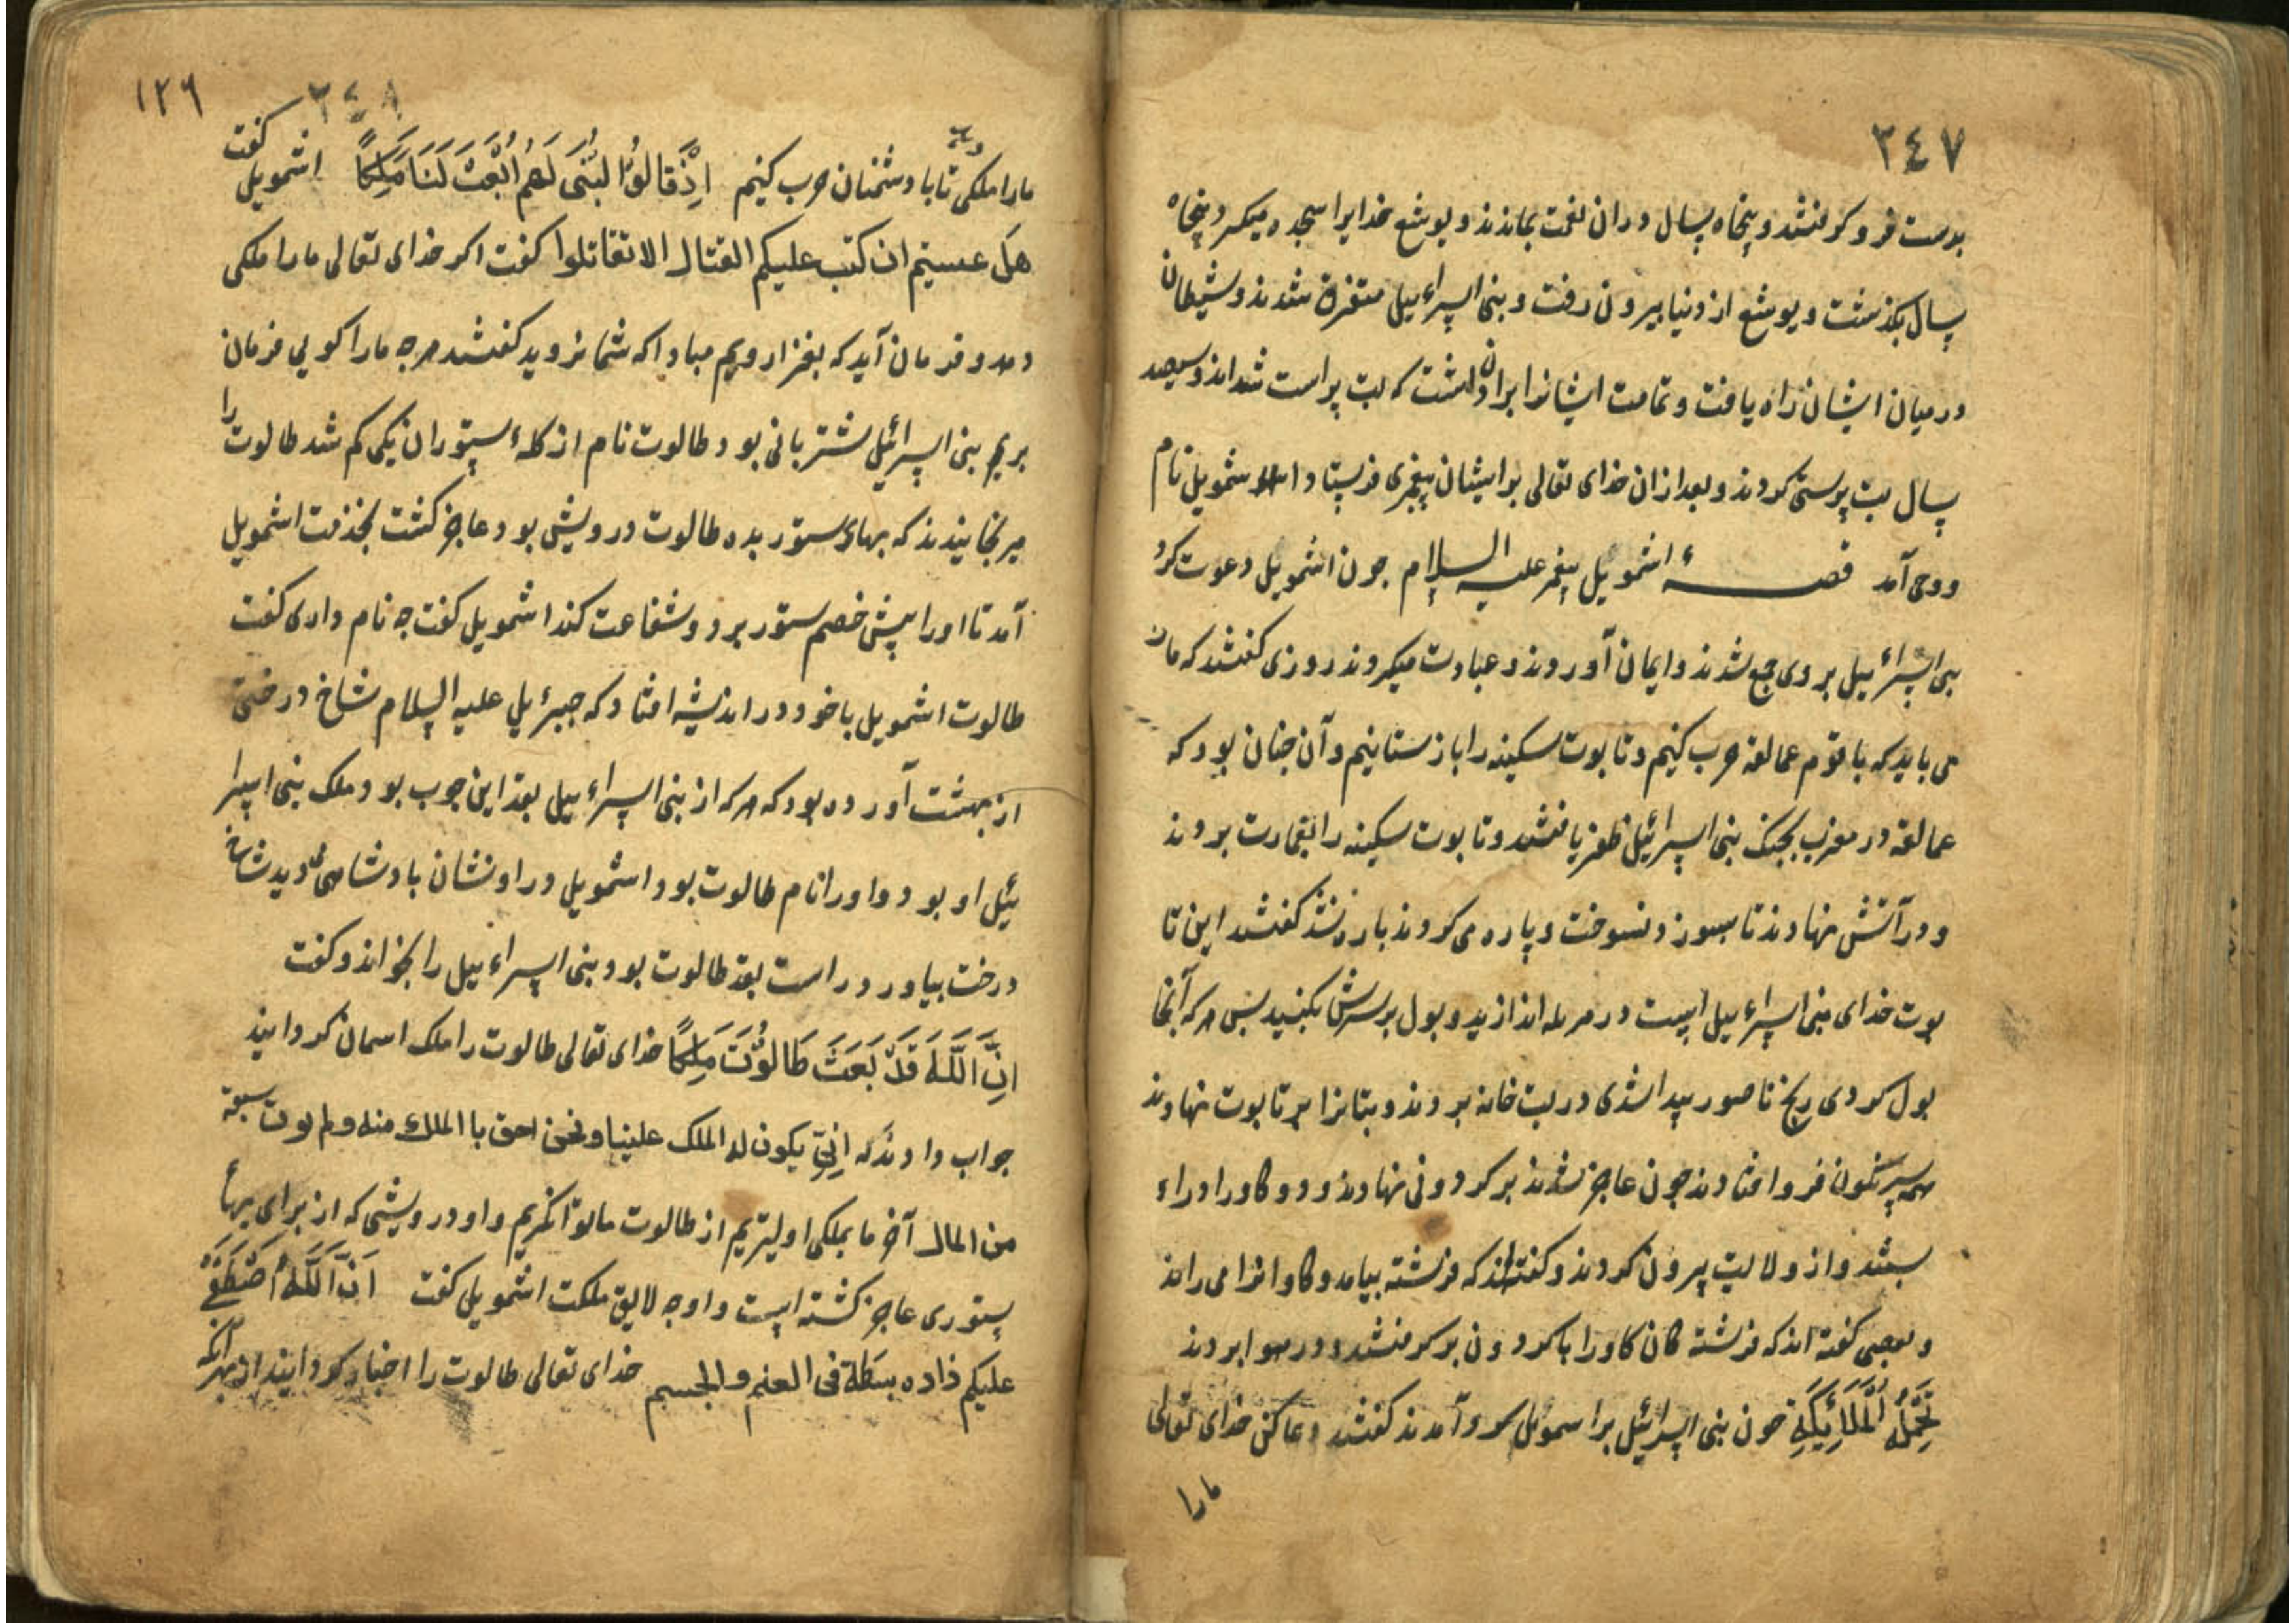 ٣٤٧
بوست فرو کوفتند و پنجاه سال در آن نعمت بماندند و یوشع خدایرا سجده میکرد پنجاه
سال بگذشت و یوشع از دنیا بیرون رفت و بنی اسراءییل متفرق شدند و شیطان
در میان ایشان راه یافت و تمامت ایشانرا بران داشت که بت پراست شداند و سیصد
سال بت پرستی کردند و بعد از ان خدای تعالی بر ایشان پیغمبری فرستاد اشمویل نام
و وحی آمد قصهٔ اشموئیل پیغمبر علیه السلام جون اشمویل دعوت کرد
بنی اسراءییل بر وی جمع شدند و ایمان آوردند و عبادت میکردند روزی کفتند که مارا
می باید که با قوم عمالقه حرب کنیم و تابوت سکینه را باز ستانیم و آن جنان بود که
عمالقه در مغرب بجنک بنی اسرائیل ظفر یافتند و تابوت سکینه را بغارت بردند
و در آتش نهادند تا بسوزد نسوخت و پاره می کردند باره نشد کفتند این تا
بوت خدای بنی اسراءییل است در مزبله اندازید و بول بر سرش بکنید بس هر که آنجا
بول کردی رنج ناصور پیدا شدی در بت خانه بردند و بتانرا بر تابوت نهادند
همه سرنکون فرو افتادند چون عاجز شدند بر کردونی نهادند و دو کاو را دراو
ببستند و از ولایت بیرون کردند و کفته‌اند که فرشته بیامد و کاوانرا می راند
و بعضی کفته اند که فرشته کان کاو را با کردون بر کرفتند و در هوا بردند
تَحْمِلُهُ الْمَلَائِكَةِ جون بنی اسرائیل بر اسموئل آمدند کفتند دعا کن خدای تعالی
مارا
١٢٦
٣٤٨
مارا ملکی دهد تا با دشمنان حرب کنیم اِذْ قَالُوا لِنَبِیٍّ لَهُمُ ابْعَثْ لَنَا مَلِكًا اشمویل کفت
هل عسیتم ان کتب علیکم القتال الا تقاتلوا کفت اکر خدای تعالی مارا ملکی
دهد و فرمان آید که بغزا رویم مبادا که شما نروید کفتند هرجه مارا کویی فرمان
بریم بنی اسرائیل شتربانی بود طالوت نام از کلهٔ ستوران یکی کم شد طالوت را
میرنجانیدند که بهای ستور بده طالوت درویشی بود عاجز کشت بخذمت اشمویل
آمد تا اورا پیش خصم ستور برد و شفاعت کند اشمویل کفت جه نام داری کفت
طالوت اشمویل با خود در اندیشه افتاد که جبرئیل علیه السلام شاخ درختی
از بهشت آورده بود که هر که از بنی اسراءییل بقد این جوب بود ملک بنی اسرا
ئیل او بود و اورا نام طالوت بود اشمویل در او نشان بادشاهی دید شاخ
درخت بیاورد راست بقد طالوت بود بنی اسراءییل را بخواند و کفت
اِنَّ اللّٰهَ قَدْ بَعَثَ طَالُوْتَ مَلِكًا خدای تعالی طالوت را ملک اسمان کردانید
جواب دادند که اَنّی یکون له الملک علینا و نحن احق با الملک منه و لم یوت سعة
من المال آخر ما بملکی اولیتریم از طالوت ما توانکریم و او درویشی که از برای بهاء
ستوری عاجز کشته است و او جه لایق ملکت اشمویل کفت اَنَّ اللّٰهَ اصْطَفٰیهُ
علیکم زاده بسطة فی العلم و الجسم خدای تعالی طالوت را اختیار کردانید از بهر آنکه